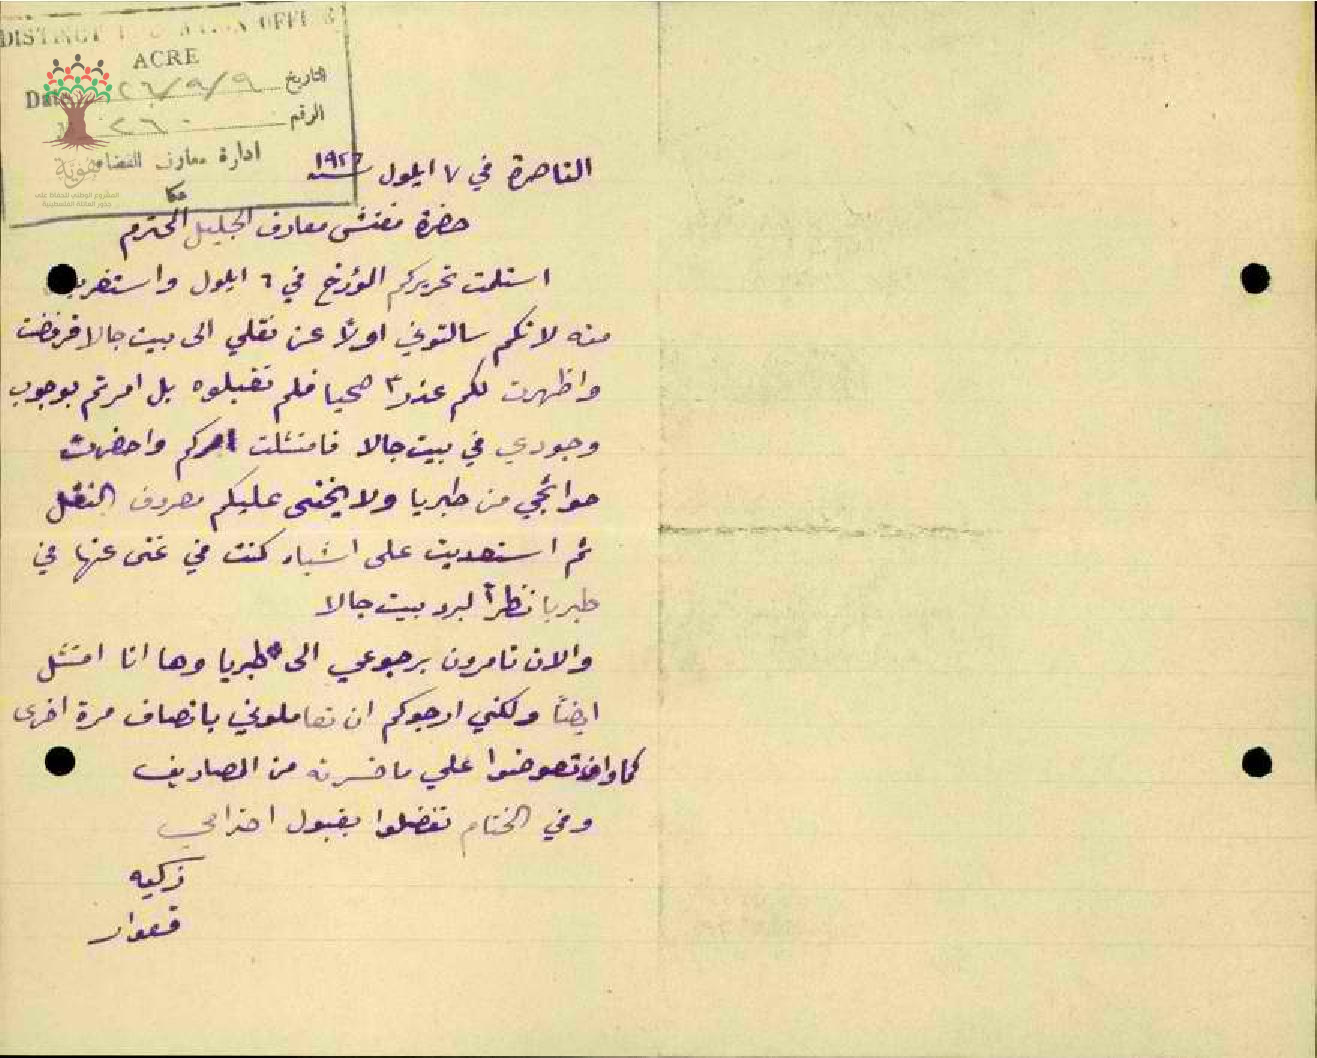 DISTRICT EDUCATION OFFICE
ACRE
التاريخ ٢٦/٩/٩ Date
الرقم ٢٦٠
ادارة معارف القضاء
عكا
هوية
المشروع الوطني للحفاظ على
جذور العائلة الفلسطينية
الناصرة في ٧ ايلول ١٩٢٦ سنه
حضرة مفتش معارف الجليل المحترم
استلمت تحريركم المؤرخ في ٦ ايلول واستغربت
منه لانكم سالتوني اولاً عن نقلي الى بيت جالا فرفضت
واظهرت لكم عذراً صحيا فلم تقبلوه بل امرتم بوجوب
وجودي في بيت جالا فامتثلت امركم واحضرت
حوائجي من طبريا ولا يخفى عليكم مصروف النقل
ثم استعديت على اشياء كنت في غنى عنها في
طبريا نظراً لبرد بيت جالا
والان تامرون برجوعي الى طبريا وها انا امتثل
ايضاً ولكني ارجوكم ان تعاملوني بانصاف مرة اخرى
كما وان تعوضوا علي ما خسرته من المصاريف
وفي الختام تفضلوا بقبول احترامي
زكيه
قعوار